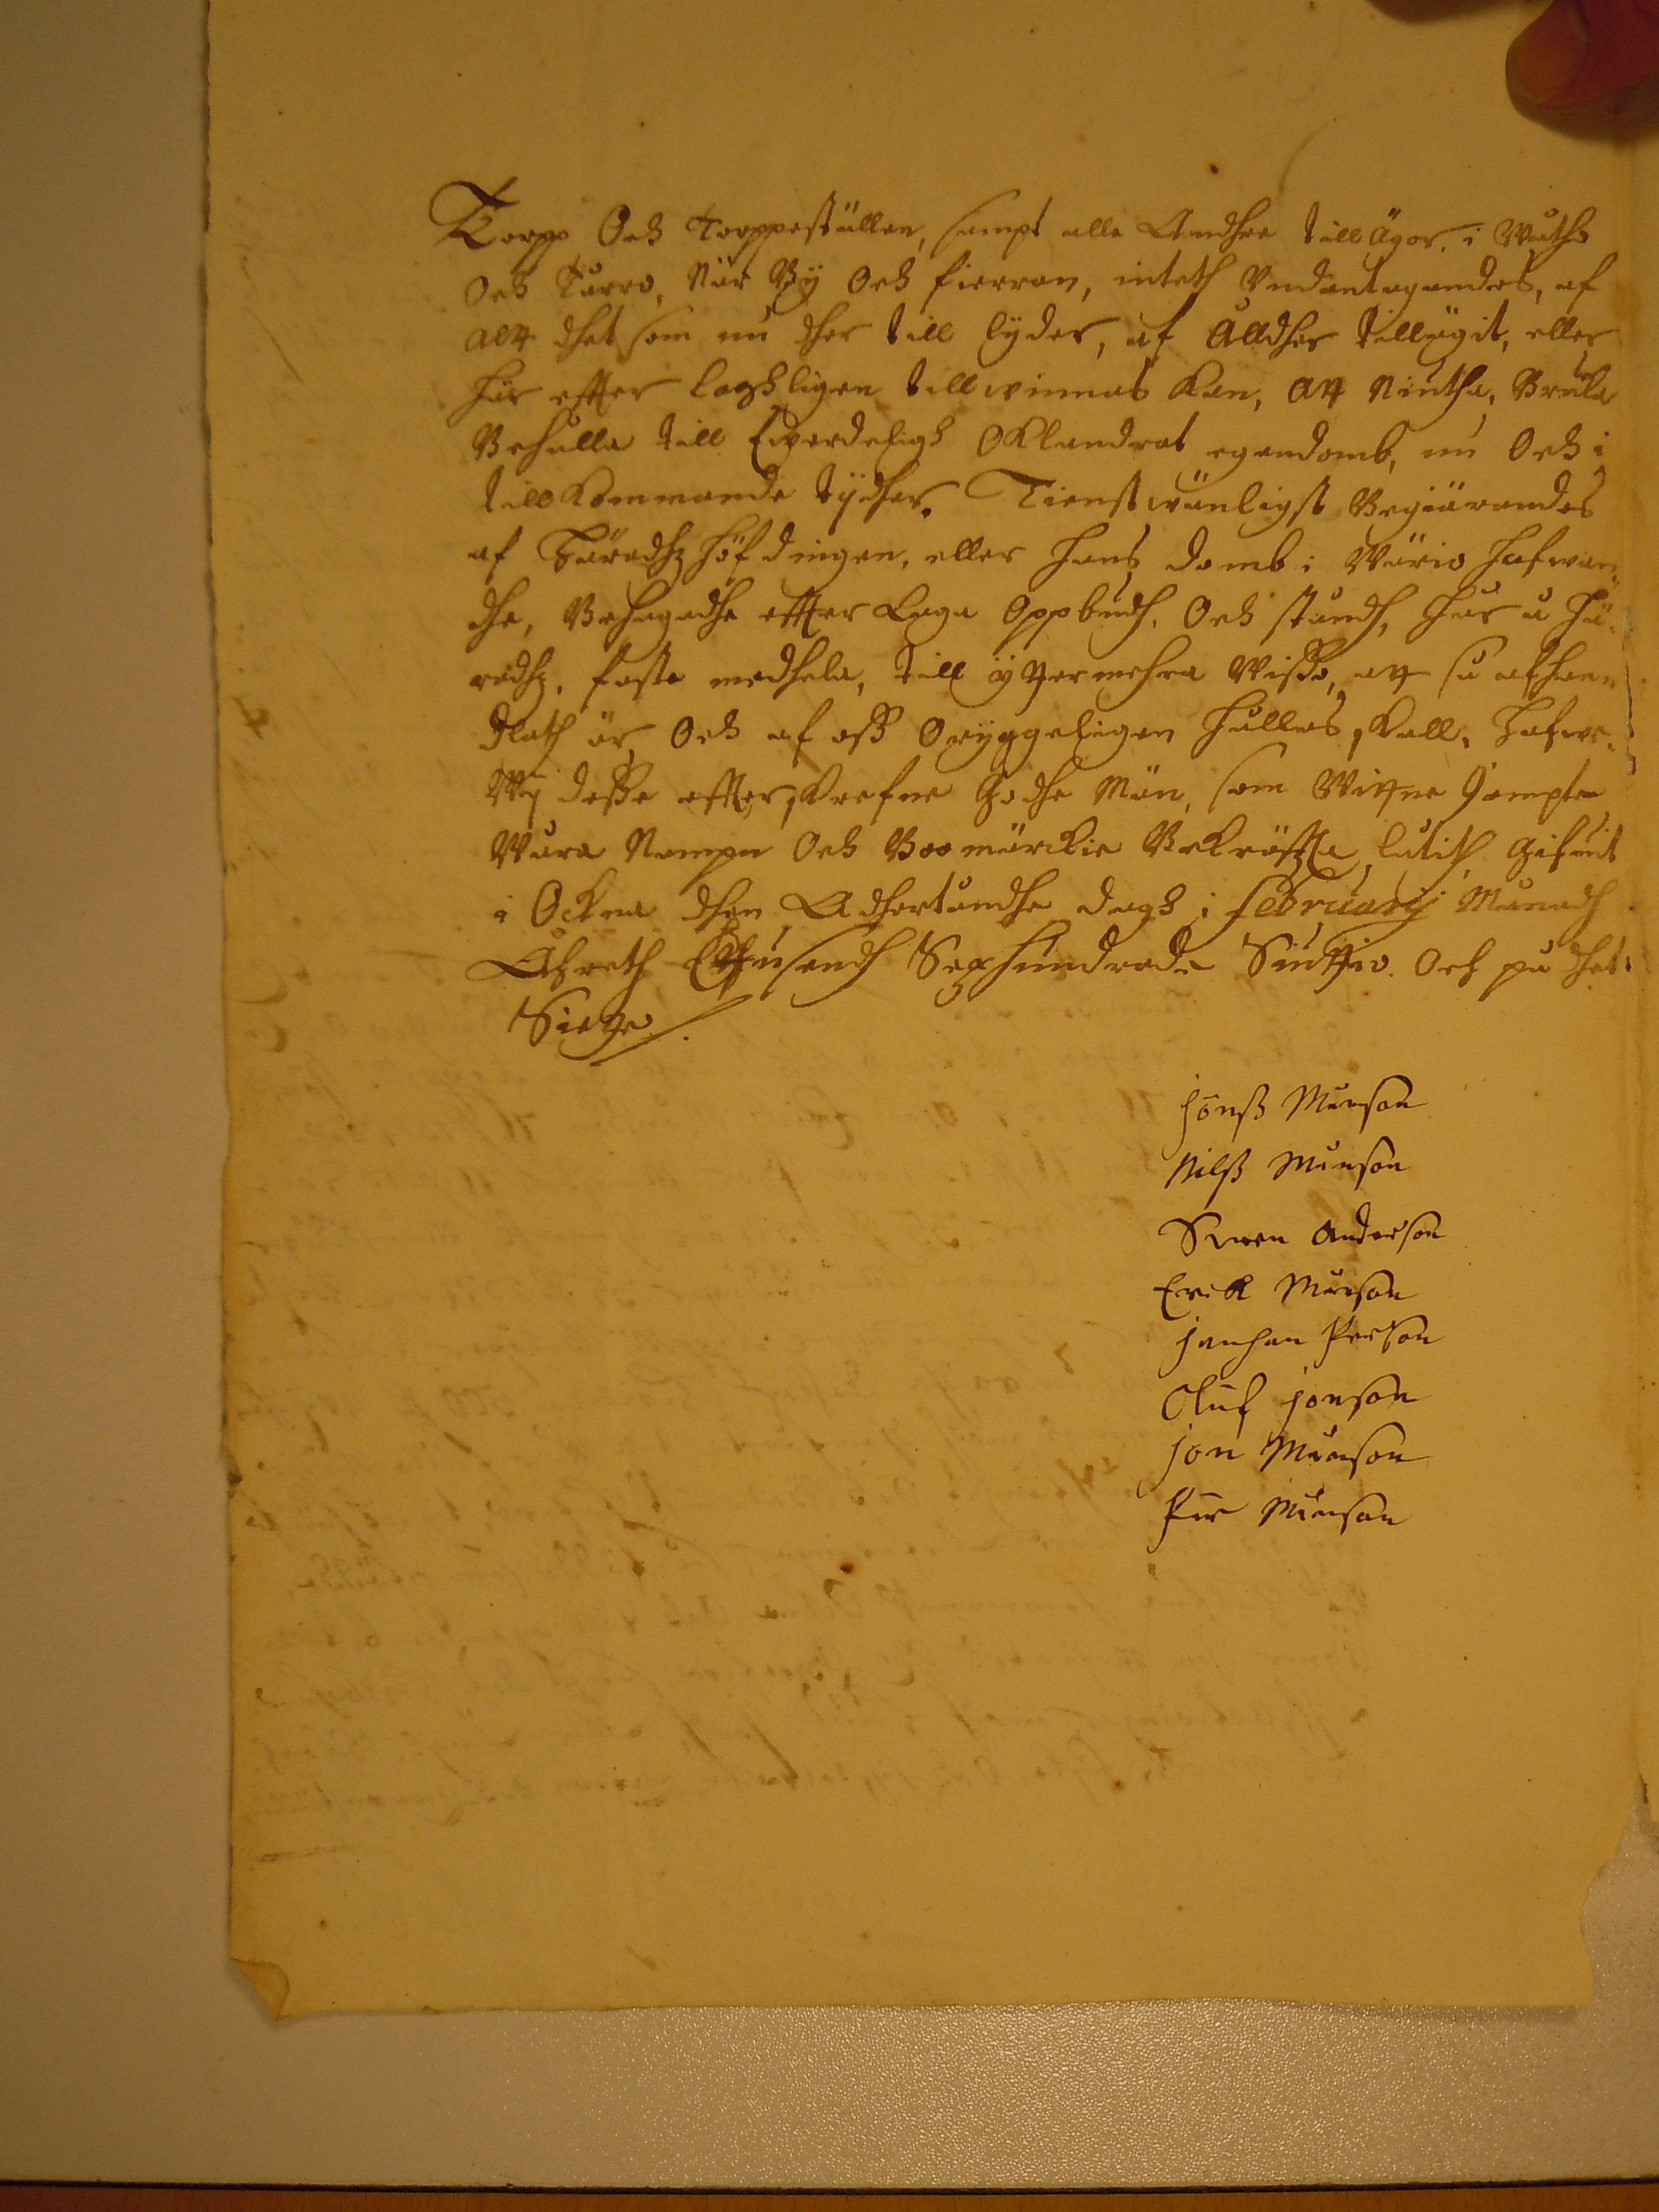 Torpp Och Torppeställen, sampt alle Andhre till ägor, i Wåtho
Och Torro, När By Och fierran, inteth Vndantagandes, af
alt dhet som nu dher till lyder, afÅlldher tillägit, eller
här effter laghligen till winnas kan, att Niutha, Bruka
Behålla till Ewerdeligh Oklandrat egendomb, nu Och i
till kommande tydher. Tienstwänligst Begiärandes
af Häradhz höfdingen, eller hans domb i Wärio hafwan-
dhe, Behagadhe effter Laga Oppbudh, Och ståndh, här å Hä-
radhz, faste medhela, till yttermehra Wisso, att så afhan-
dlath är, Och af oss Oryggeligen hålles, skall, Hafwe
Wij desse effter skrefne Godhe Män, som Wittne Jempte
Wåra Nampn Och Boomärckie Bekräffta låtith. Gifwit
i Ockna dhen Adhertondhe dagh i februarij Månadh
Åhreth Ettusendh Sexhundrade Siuttio. Och på dhet
Siette
Jönß Månson
Nilß Månson
Swen Anderson
Erick Månson
Janhan Person
Oluf Jonson
Jon Månson
Pär Månson